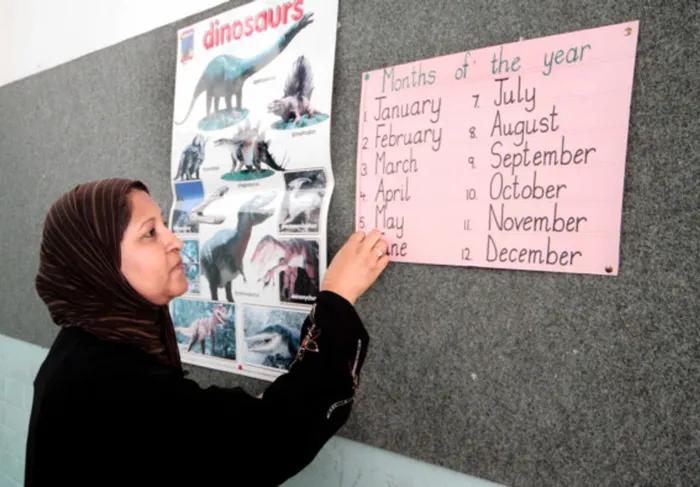 dinosaurs
Months of the year
1. January
2 February
3 March
4. April
5. May
une
7. July
8. August
9. September
10. October
11. November
12. December